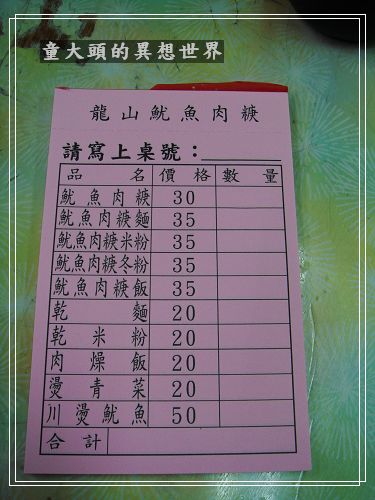 童大頭的異想世界
龍山魷魚肉羹
請寫上桌號：
品名 價格 數量
魷魚肉羹 30
魷魚肉羹麵 35
魷魚肉羹米粉 35
魷魚肉羹冬粉 35
魷魚肉羹飯 35
乾麵 20
乾米粉 20
肉燥飯 20
燙青菜 20
川燙魷魚 50
合計